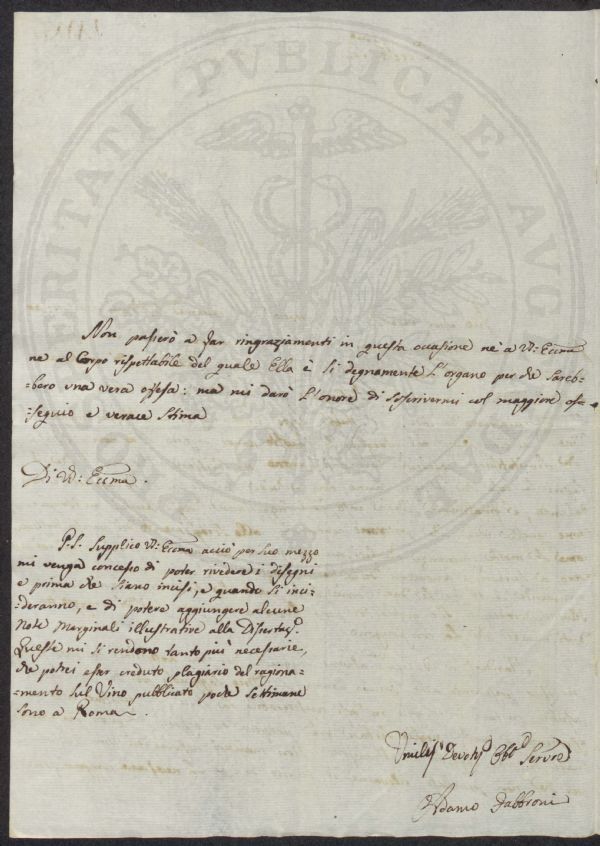 PRO VERITATI PVBLICAE AVCTORITATE
Non passerò a far ringraziamenti in questa occasione nè a V: Eccma
ne al Corpo rispettabile del quale Ella è si degnamente L'organo per che sareb-
-bero una vera offesa: ma mi darò L'onore di sosscrivermi col maggiore os-
-sequio e verace Stima
Di V: Eccma.
P.S. Supplico V: Eccma acciò per suo mezzo
mi venga concesso di poter rivedere i disegni
e prima che siano incisi, e quando si inci-
-deranno, e di potere aggiungere alcune
Note Marginali illustrative alla Dissertaz.e
Queste mi si rendono tanto più necessarie,
che potrei esser creduto plagiario del ragiona-
-mento sul Vino pubblicato poche settimane
sono a Roma.
Umil.o Devot.o Obb.o Serv.re
Adamo Fabbroni